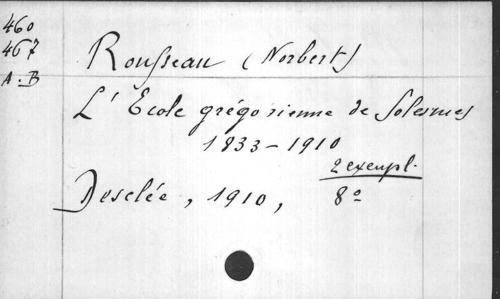 460
467
A.B
Rousseau (Norbert)
L'Ecole grégorienne de Solesmes
1833-1910
2 exempl.
Desclée, 1910, 8°